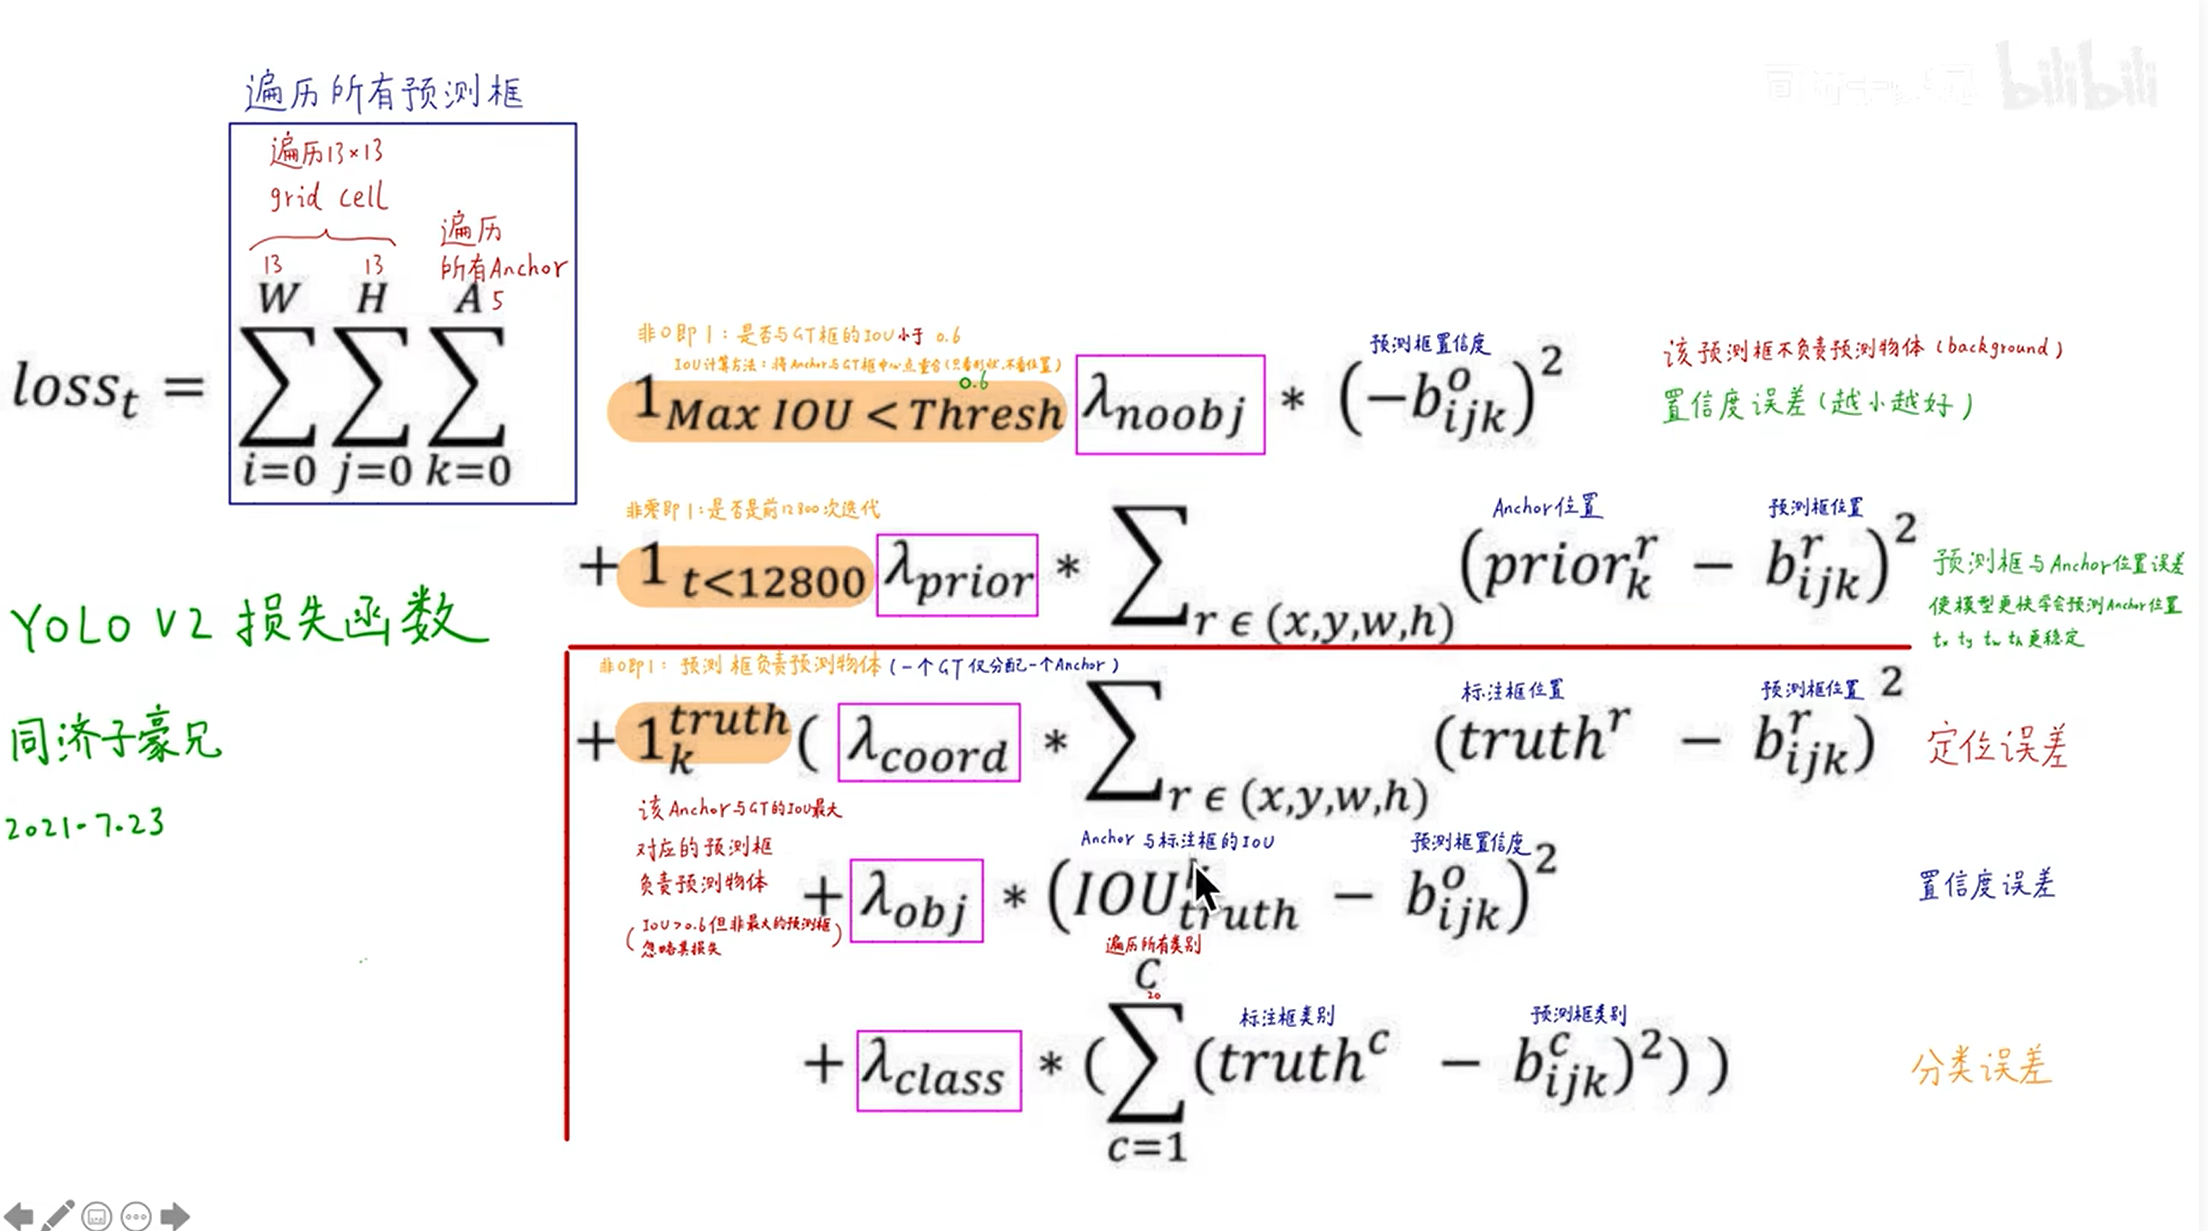 遍历所有预测框
bilibili
遍历13×13
grid cell
遍历
所有Anchor
13 13
W H A 5
loss_t = ∑ ∑ ∑
i=0 j=0 k=0
非0即1：是否与GT框的IOU小于 0.6
IOU计算方法：将Anchor与GT框中心点重合（只看形状，不看位置）
0.6
预测框置信度
1_{Max IOU < Thresh} λ_{noobj} * (−b_{ijk}^o)^2
该预测框不负责预测物体（background）
置信度误差（越小越好）
非零即1：是否是前12800次迭代
Anchor位置 预测框位置
+ 1_{t<12800} λ_{prior} * ∑_{r ϵ (x,y,w,h)} (prior_k^r − b_{ijk}^r)^2
预测框与Anchor位置误差
使模型更快学会预测Anchor位置
tx ty tw th 更稳定
YOLO V2 损失函数
同济子豪兄
2021.7.23
非0即1：预测框负责预测物体（一个GT仅分配一个Anchor）
标注框位置 预测框位置
+ 1_k^{truth} ( λ_{coord} * ∑_{r ϵ (x,y,w,h)} (truth^r − b_{ijk}^r)^2
定位误差
该Anchor与GT的IOU最大
对应的预测框
负责预测物体
（IOU>0.6但非最大的预测框
忽略其损失）
Anchor与标注框的IOU 预测框置信度
+ λ_{obj} * (IOU_{truth} − b_{ijk}^o)^2
置信度误差
遍历所有类别
C
20
标注框类别 预测框类别
+ λ_{class} * (∑ (truth^c − b_{ijk}^c)^2))
c=1
分类误差